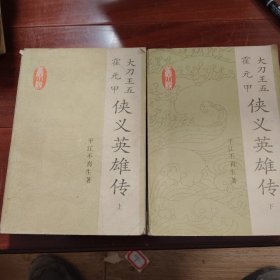 大刀王五
霍元甲
侠义英雄传
上
平江不肖生著
大刀王五
霍元甲
侠义英雄传
下
平江不肖生著